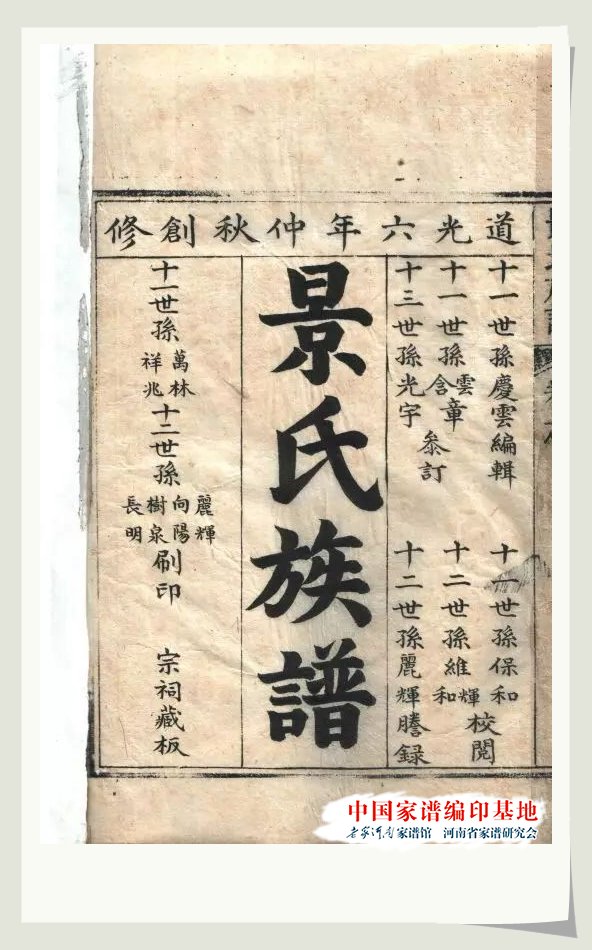 道光六年仲秋創修
十一世孫慶雲編輯
十一世孫保和
十一世孫雲章
含
十二世孫維輝
和
校閲
十三世孫光宇
叅訂
十二世孫麗輝謄録
景氏族譜
十一世孫萬林
祥兆
十二世孫麗輝
向陽
樹泉
長明
刷印
宗祠藏板
中国家谱编印基地
老家河南家谱馆 河南省家谱研究会